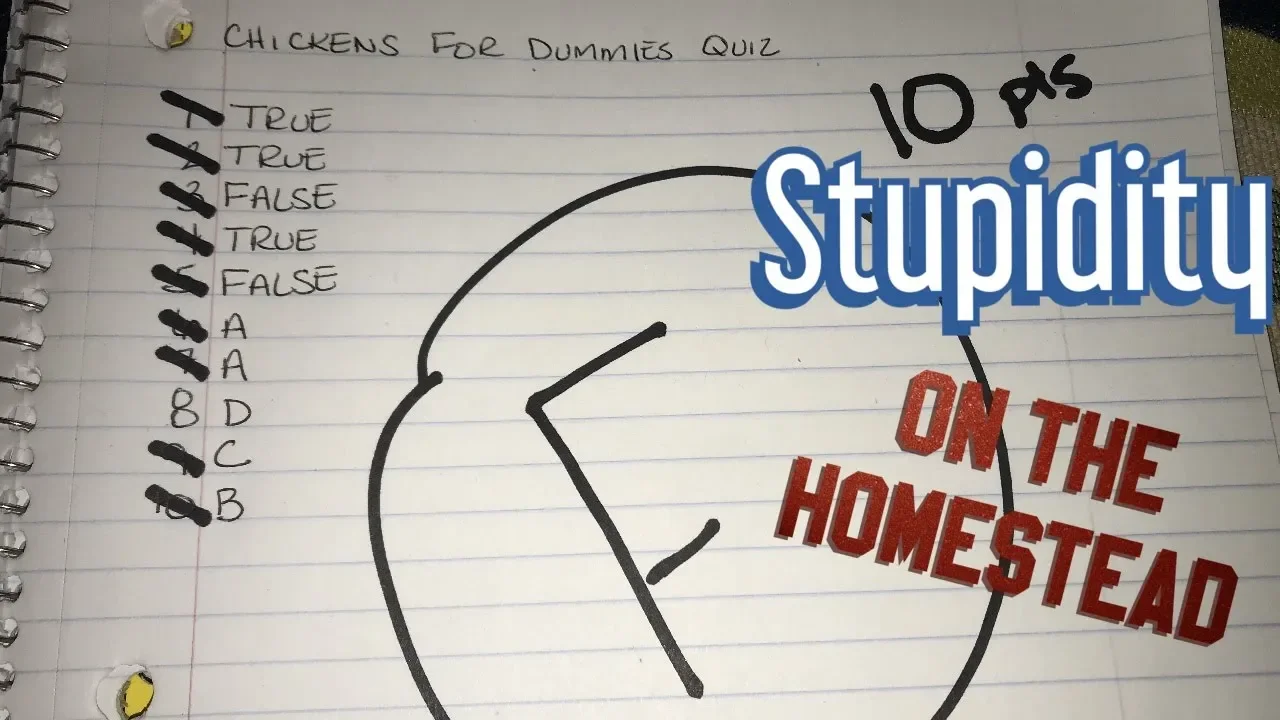 CHICKENS FOR DUMMIES QUIZ
10 pts
1 TRUE
2 TRUE
3 FALSE
4 TRUE
5 FALSE
6 A
7 A
8 D
9 C
10 B
F
Stupidity
ON THE
HOMESTEAD